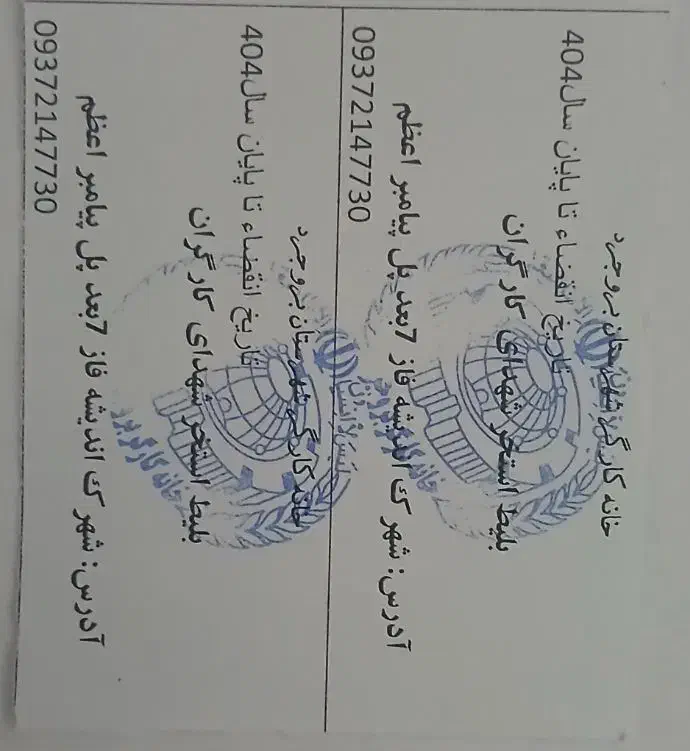 خانه کارگر شهرستان بروجرد
تاریخ انقضاء تا پایان سال404
بلیط استخر شهدای کارگران
آدرس: شهرک اندیشه فاز 7بعد پل پیامبر اعظم
09372147730
خانه کارگر شهرستان بروجرد
تاریخ انقضاء تا پایان سال404
بلیط استخر شهدای کارگران
آدرس: شهرک اندیشه فاز 7بعد پل پیامبر اعظم
09372147730
خانه کارگر بروجرد